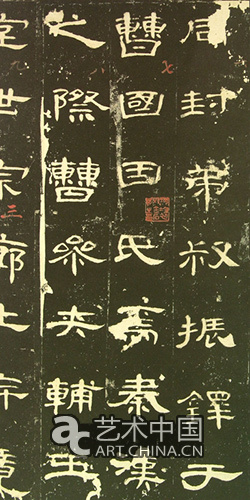 同封弟叔振鐸于
曹國因氏焉秦漢
之際曹參夾輔王
室世宗廓土斥竟
七
八
三
艺术中国
ART.CHINA.CN